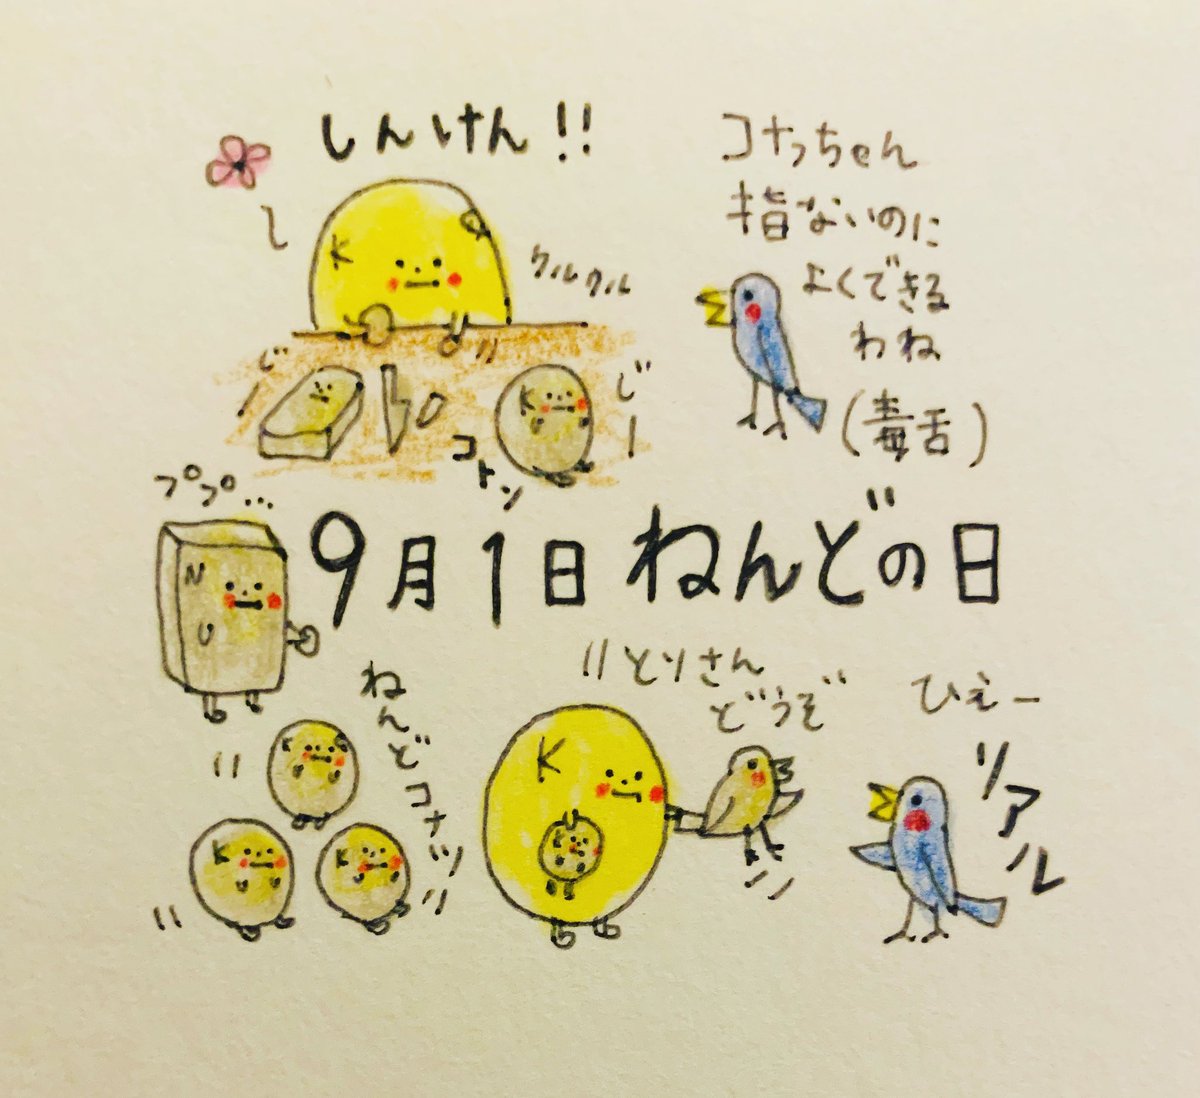 しんけん!!
コナっちゃん
指ないのに
よくできる
わね
(毒舌)
クルクル
K
じー
じー
K
コトン
ププ…
N
U
9月1日 ねんどの日
ねんどコナッツ
とりさん
どうぞ
ひぇー
リアル
K
K
K
K
K